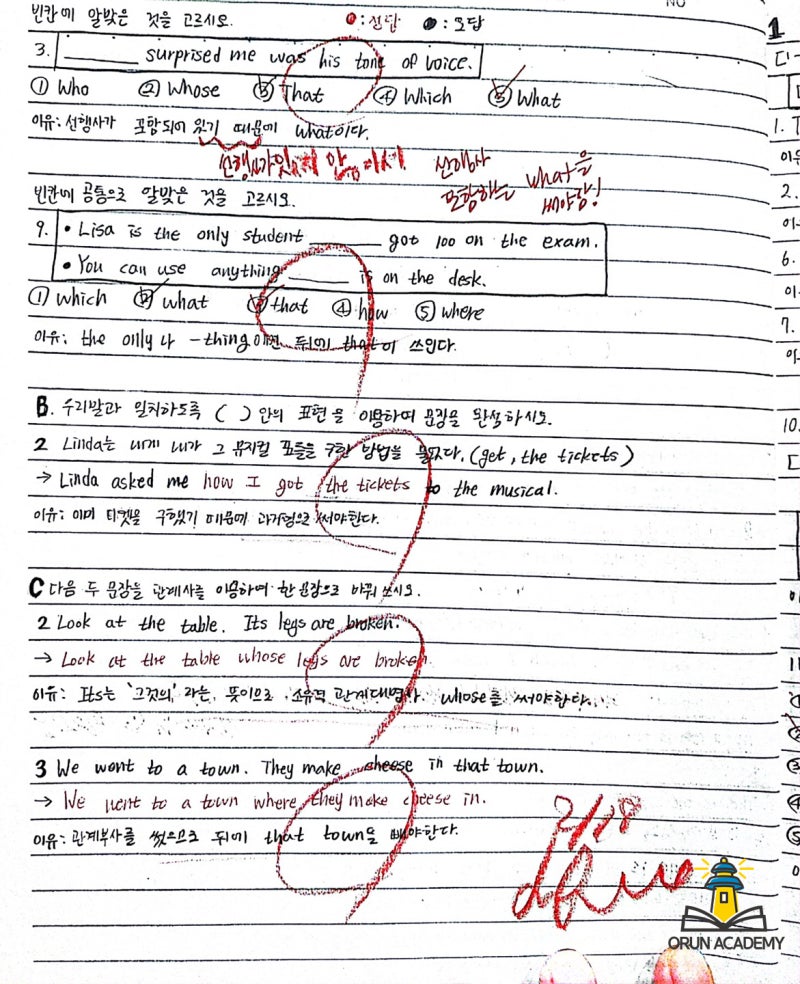 빈칸에 알맞은 것을 고르시오. ●:정답 ●:오답
3. ______ surprised me was his tone of voice.
① Who ② Whose ③ That ④ Which ⑤ What
이유: 선행사가 포함되어 있기 때문에 what이다.
선행사
포함하는 what을
써야함!
빈칸에 공통으로 알맞은 것을 고르시오.
9. • Lisa is the only student ______ got 100 on the exam.
• You can use anything ______ is on the desk.
① which ② what ③ that ④ how ⑤ where
이유: the only나 -thing이면 뒤에 that이 쓰인다.
B. 우리말과 일치하도록 ( ) 안의 표현을 이용하여 문장을 완성하시오.
2 Linda는 내게 내가 그 뮤지컬 표들을 구한 방법을 물었다. (get, the tickets)
→ Linda asked me how I got the tickets to the musical.
이유: 이미 티켓을 구했기 때문에 과거형으로 써야한다.
C 다음 두 문장을 관계사를 이용하여 한 문장으로 바꿔 쓰시오.
2 Look at the table. Its legs are broken.
→ Look at the table whose legs are broken.
이유: Its는 '그것의' 라는 뜻이므로 소유격 관계대명사 whose를 써야한다.
3 We went to a town. They make cheese in that town.
→ We went to a town where they make cheese in.
이유: 관계부사를 썼으므로 뒤에 that town을 빼야한다.
2/18
ORUN ACADEMY
1
1.
2.
6.
7.
10.
11
①
②
③
④
⑤